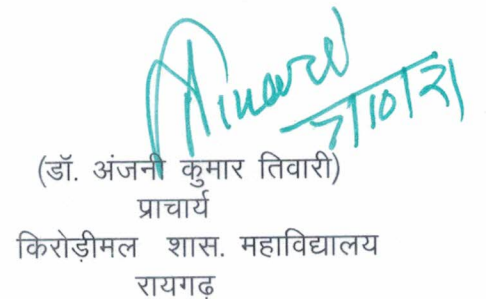 7/10/21
(डॉ. अंजनी कुमार तिवारी)
प्राचार्य
किरोड़ीमल शास. महाविद्यालय
रायगढ़